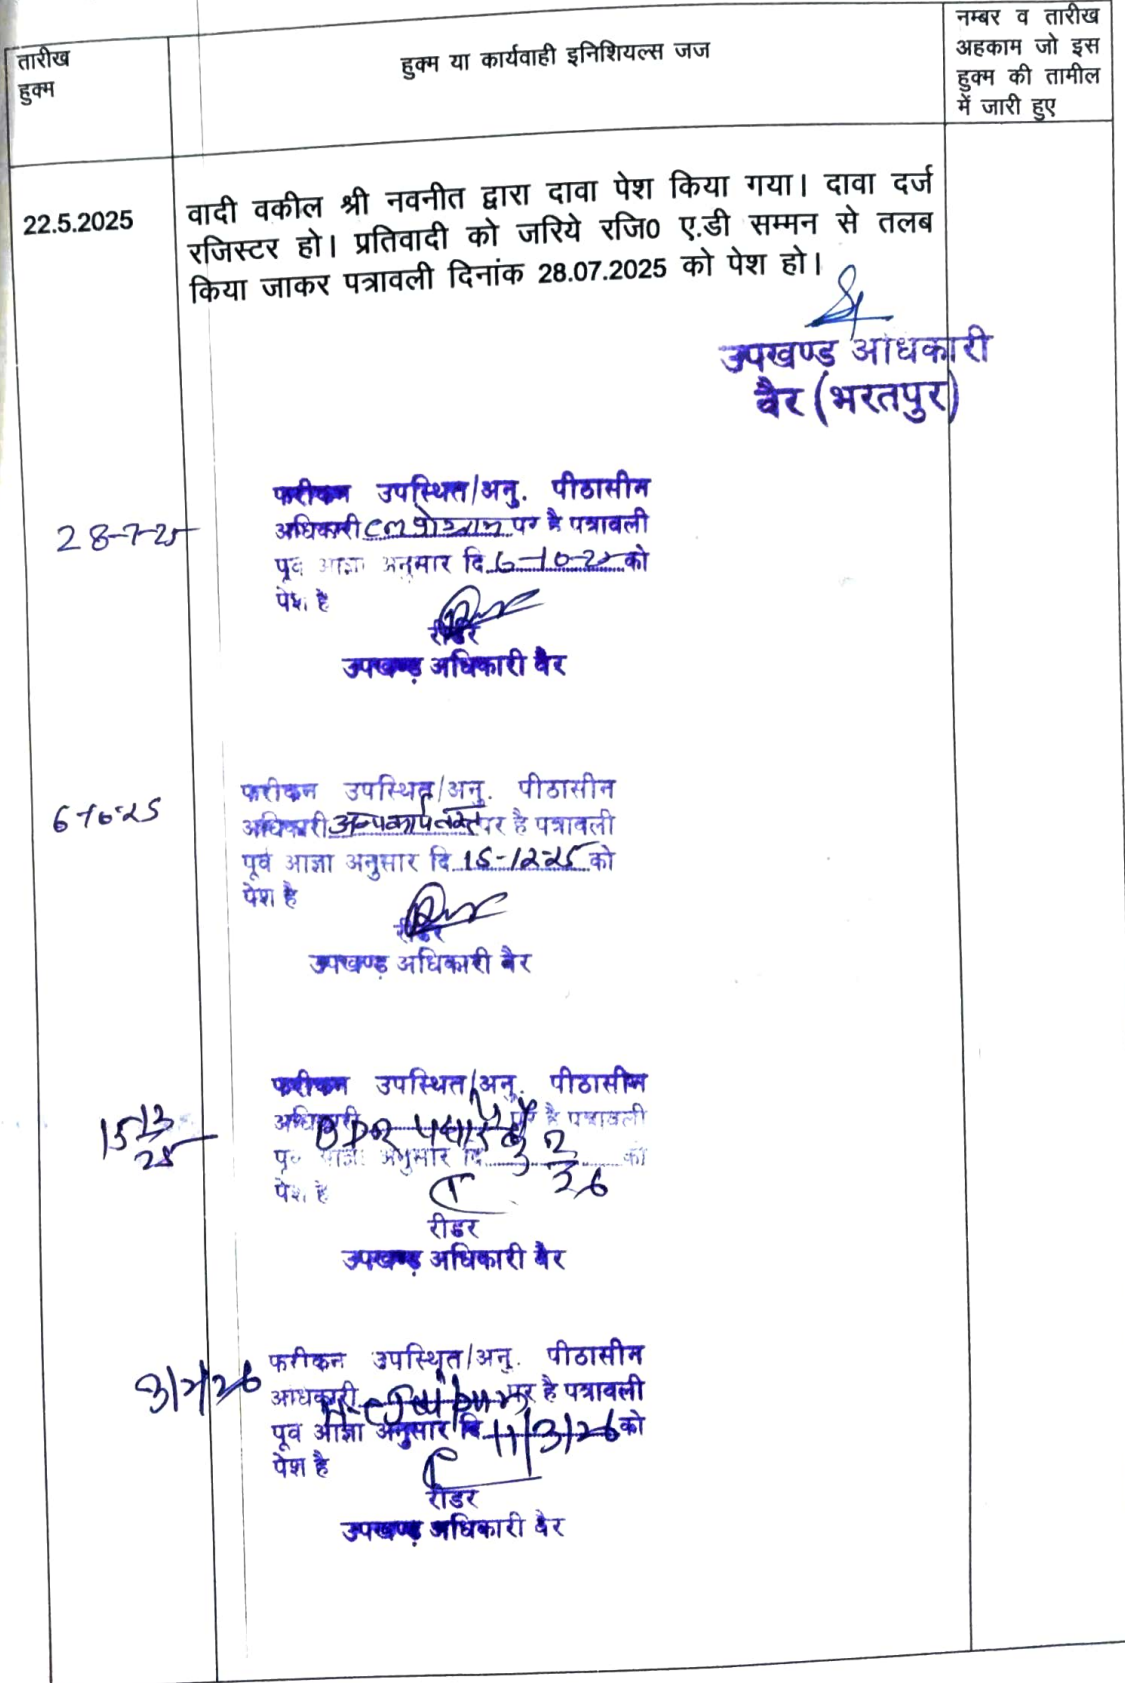 तारीख
हुक्म
हुक्म या कार्यवाही इनिशियल्स जज
नम्बर व तारीख
अहकाम जो इस
हुक्म की तामील
में जारी हुए
22.5.2025
वादी वकील श्री नवनीत द्वारा दावा पेश किया गया। दावा दर्ज
रजिस्टर हो। प्रतिवादी को जरिये रजि0 ए.डी सम्मन से तलब
किया जाकर पत्रावली दिनांक 28.07.2025 को पेश हो।
उपखण्ड अधिकारी
वैर (भरतपुर)
28-7-25
फरीकन उपस्थित/अनु. पीठासीन
अधिकारी पर है पत्रावली
पूर्व आज्ञा अनुसार दि 6-10-25 को
पेश है
रीडर
उपखण्ड अधिकारी वैर
6-10-25
फरीकन उपस्थित/अनु. पीठासीन
अधिकारी पर है पत्रावली
पूर्व आज्ञा अनुसार दि 15-12-25 को
पेश है
रीडर
उपखण्ड अधिकारी वैर
15 12
25
फरीकन उपस्थित/अनु. पीठासीन
अधिकारी पर है पत्रावली
पूर्व आज्ञा अनुसार दि 3 2 को
26
पेश है
रीडर
उपखण्ड अधिकारी वैर
3/2/26
फरीकन उपस्थित/अनु. पीठासीन
अधिकारी पर है पत्रावली
पूर्व आज्ञा अनुसार दि 11/3/26 को
पेश है
रीडर
उपखण्ड अधिकारी वैर